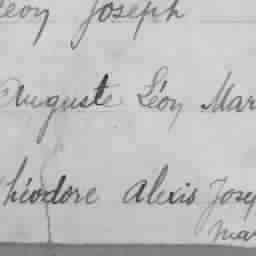 Léon Joseph
Auguste Léon Mar
Théodore Alexis Josep
Mar